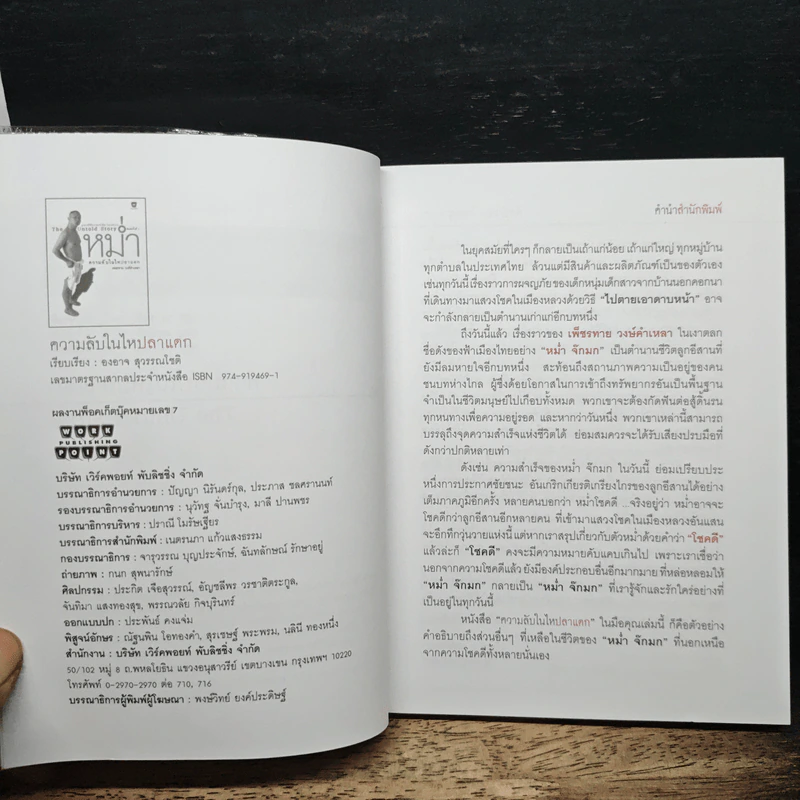 The Untold Story
หม่ำ
ความลับในไหปลาแดก
ความลับในไหปลาแดก
เรียบเรียง : องอาจ สุวรรณโชติ
เลขมาตรฐานสากลประจำหนังสือ ISBN 974-919469-1
ผลงานพ็อคเก็ตบุ๊คหมายเลข 7
WORK
PUBLISHING
POINT
บริษัท เวิร์คพอยท์ พับลิชชิ่ง จำกัด
บรรณาธิการอำนวยการ : ปัญญา นิรันดร์กุล, ประภาส ชลศรานนท์
รองบรรณาธิการอำนวยการ : นุวัทฐ จั่นบำรุง, มาลี ปานพชร
บรรณาธิการบริหาร : ปราณี โมรัษเฐียร
บรรณาธิการสำนักพิมพ์ : เนตรนภา แก้วแสงธรรม
กองบรรณาธิการ : จารุวรรณ บุญประจักษ์, ฉันทลักษณ์ รักษาอยู่
ถ่ายภาพ : กนก สุพนารักษ์
ศิลปกรรม : ประกิต เจือสุวรรณ์, อัญชลีพร วรชาติตระกูล,
จันทิมา แสงทองสุข, พรรณวลัย กิจบุรินทร์
ออกแบบปก : ประพันธ์ คงแจ่ม
พิสูจน์อักษร : ณัฐนพิน โอทองคำ, สุรเชษฐ์ พระพรม, นลินี ทองหนึ่ง
สำนักงาน : บริษัท เวิร์คพอยท์ พับลิชชิ่ง จำกัด
50/102 หมู่ 8 ถ.พหลโยธิน แขวงอนุสาวรีย์ เขตบางเขน กรุงเทพฯ 10220
โทรศัพท์ 0-2970-2970 ต่อ 710, 716
บรรณาธิการผู้พิมพ์ผู้โฆษณา : พงษ์วิทย์ ยงค์ประดิษฐ์
คำนำสำนักพิมพ์
ในยุคสมัยที่ใครๆ ก็กลายเป็นเถ้าแก่น้อย เถ้าแก่ใหญ่ ทุกหมู่บ้าน
ทุกตำบลในประเทศไทย ล้วนแต่มีสินค้าและผลิตภัณฑ์เป็นของตัวเอง
เช่นทุกวันนี้เรื่องราวการผจญภัย ของเด็กหนุ่มเด็กสาวจากบ้านนอกคอกนา
ที่เดินทางมาแสวงโชคในเมืองหลวงด้วยวิธี "ไปตายเอาดาบหน้า" อาจ
จะกำลังกลายเป็นตำนานเก่าแก่อีกบทหนึ่ง
ถึงวันนี้แล้ว เรื่องราวของ เพ็ชรทาย วงษ์คำเหลา ในเงาตลก
ชื่อดังของฟ้าเมืองไทยอย่าง "หม่ำ จ๊กมก" เป็นตำนานชีวิตลูกอีสานที่
ยังมีลมหายใจอีกบทหนึ่ง สะท้อนถึงสถานภาพความเป็นอยู่ของคน
ชนบทห่างไกล ผู้ซึ่งด้อยโอกาสในการเข้าถึงทรัพยากรอันเป็นพื้นฐาน
จำเป็นในชีวิตมนุษย์ไปเกือบทั้งหมด พวกเขาจะต้องกัดฟันต่อสู้ดิ้นรน
ทุกหนทางเพื่อความอยู่รอด และหากว่าวันหนึ่ง พวกเขาเหล่านี้สามารถ
บรรลุถึงจุดความสำเร็จแห่งชีวิตได้ ย่อมสมควรจะได้รับเสียงปรบมือที่
ดังกว่าปกติหลายเท่า
ดังเช่น ความสำเร็จของหม่ำ จ๊กมก ในวันนี้ ย่อมเปรียบประ
หนึ่งการประกาศชัยชนะ อันเกริกเกียรติเกรียงไกรของลูกอีสานได้อย่าง
เต็มภาคภูมิอีกครั้ง หลายคนบอกว่า หม่ำโชคดี ...จริงอยู่ว่า หม่ำอาจจะ
โชคดีกว่าลูกอีสานอีกหลายคน ที่เข้ามาแสวงโชคในเมืองหลวงอันแสน
จะอึกทึกวุ่นวายแห่งนี้ แต่หากเราสรุปเกี่ยวกับตัวหม่ำด้วยคำว่า "โชคดี"
แล้วล่ะก็ "โชคดี" คงจะมีความหมายคับแคบเกินไป เพราะเราเชื่อว่า
นอกจากความโชคดีแล้ว ยังมีองค์ประกอบอื่นอีกมากมาย ที่หล่อหลอมให้
"หม่ำ จ๊กมก" กลายเป็น "หม่ำ จ๊กมก" ที่เรารู้จักและรักใคร่อย่างที่
เป็นอยู่ในทุกวันนี้
หนังสือ "ความลับในไหปลาแดก" ในมือคุณเล่มนี้ ก็คือตัวอย่าง
คำอธิบายถึงส่วนอื่นๆ ที่เหลือในชีวิตของ "หม่ำ จ๊กมก" ที่นอกเหนือ
จากความโชคดีทั้งหลายนั่นเอง